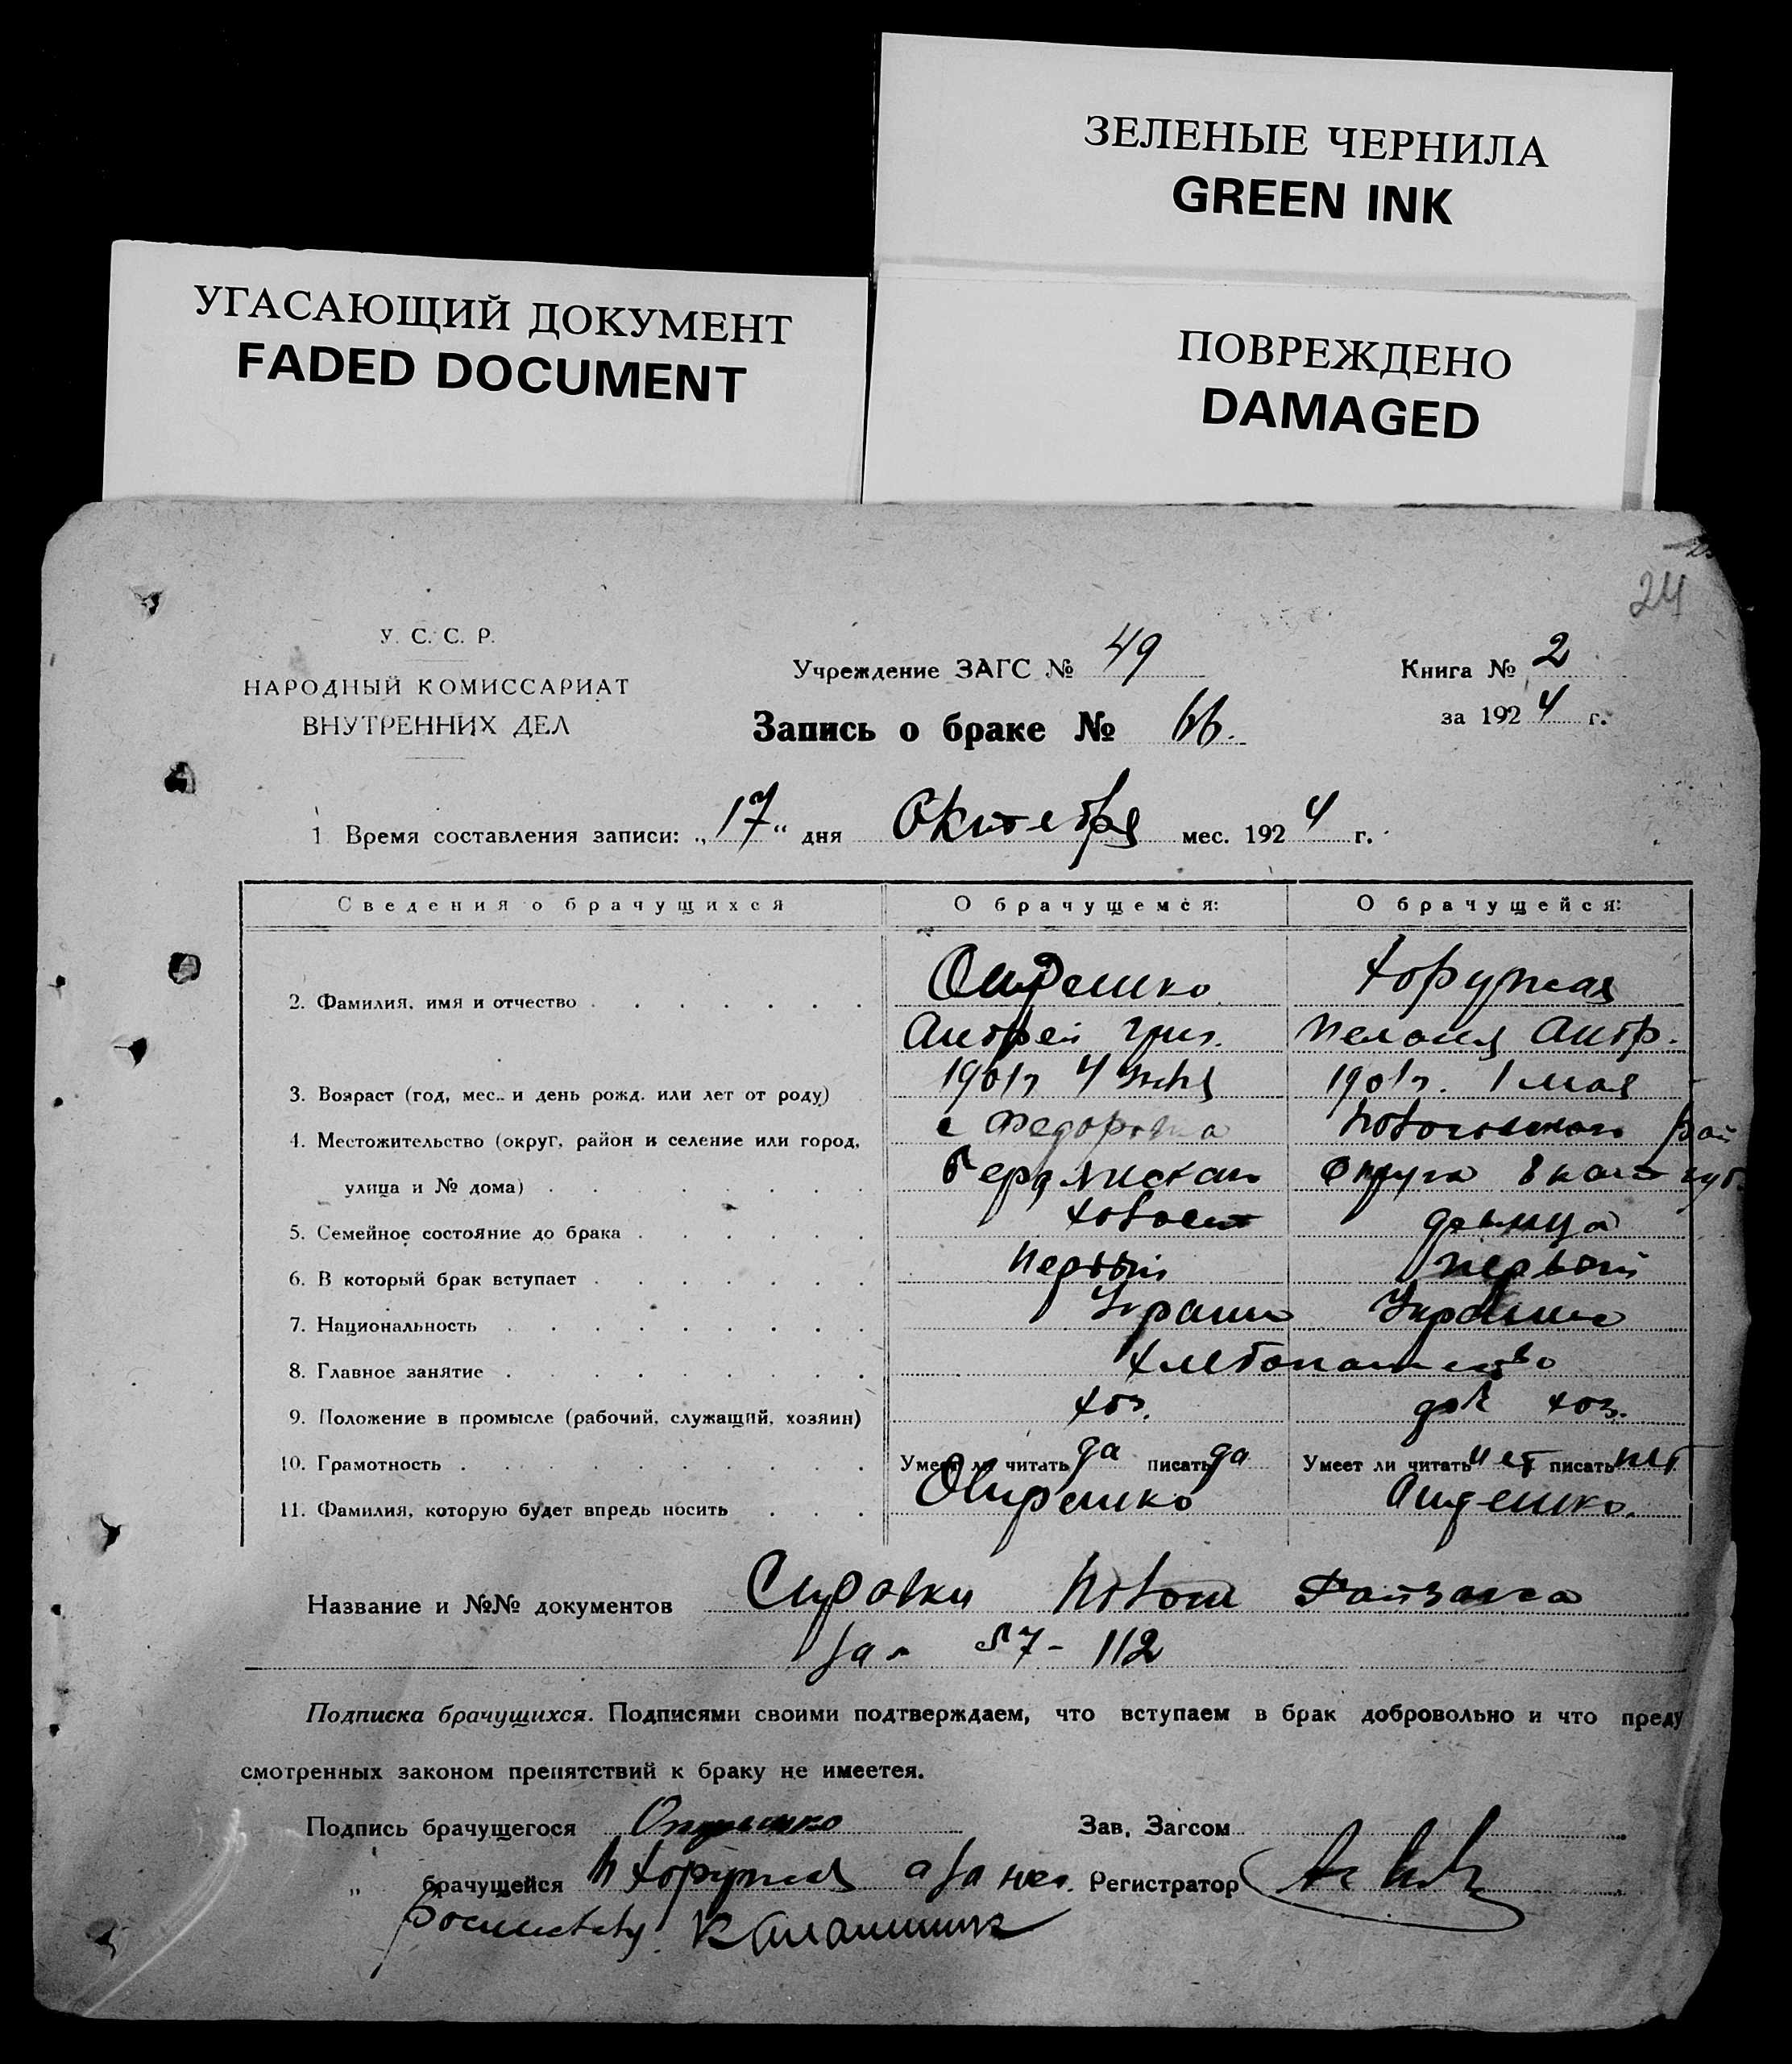 ЗЕЛЕНЫЕ ЧЕРНИЛА
GREEN INK
УГАСАЮЩИЙ ДОКУМЕНТ
FADED DOCUMENT
ПОВРЕЖДЕНО
DAMAGED
24
У. С. С. Р.
НАРОДНЫЙ КОМИССАРИАТ
ВНУТРЕННИХ ДЕЛ
Учреждение ЗАГС № 49
Книга № 2
за 1924 г.
Запись о браке № 66.
1 Время составления записи: „17“ дня Октября мес. 1924 г.
Сведения о брачущихся О брачущемся: О брачущейся:
2. Фамилия, имя и отчество Хоружая
Андрей Григ. Пелагия Андр.
3. Возраст (год, мес. и день рожд. или лет от роду) 1901г 4 1901г. 1 мая
4. Местожительство (округ, район и селение или город, с Федоровка рай
улица и № дома) округа губ.
5. Семейное состояние до брака холост девица
6. В который брак вступает первый первый
7. Национальность Украин Украин
8. Главное занятие хлебопашество
9. Положение в промысле (рабочий, служащий, хозяин) хоз. дом хоз.
10. Грамотность Умеет ли читать да писать да Умеет ли читать нет писать нет
11. Фамилия, которую будет впредь носить
Название и №№ документов Справки
за № 57-112
Подписка брачущихся. Подписями своими подтверждаем, что вступаем в брак добровольно и что преду
смотренных законом препятствий к браку не имеется.
Подпись брачущегося Зав. Загсом
„ брачущейся Хоружая а за нег. Регистратор